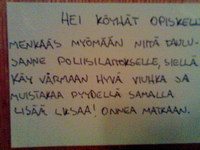 HEI KÖYHÄT OPISKELI
MENKÄÄS MYÖMÄÄN NIITÄ TAULU-
JANNE POLIISILAITOKSELLE, SIELLÄ
KÄY VARMAAN HYVÄ VIUHKA JA
MUISTAKAA PYYDELLÄ SAMALLA
LISÄÄ LIKSAA! ONNEA MATKAAN.